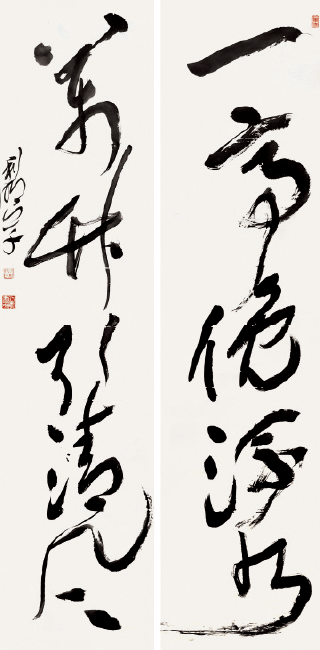 一亭俛流水
萬竹引清風